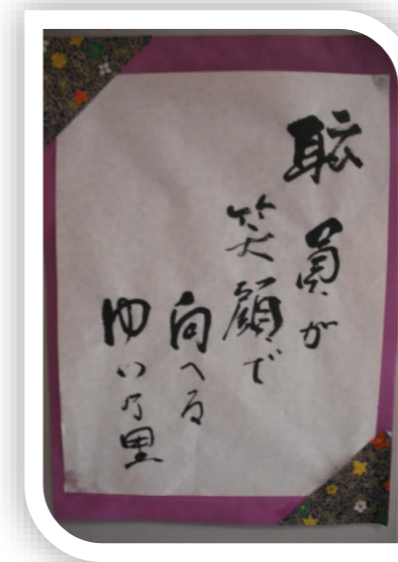 耺員が
笑顔で
向へる
ゆい乃里